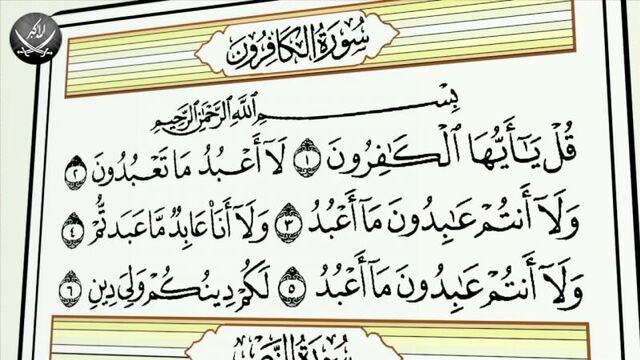 الله أكبر
سُورَةُ الْكَافِرُونَ
بِسْمِ اللَّهِ الرَّحْمَٰنِ الرَّحِيمِ
قُلْ يَٰٓأَيُّهَا ٱلْكَٰفِرُونَ ١ لَآ أَعْبُدُ مَا تَعْبُدُونَ ٢
وَلَآ أَنتُمْ عَٰبِدُونَ مَآ أَعْبُدُ ٣ وَلَآ أَنَا۠ عَابِدٌ مَّا عَبَدتُّمْ ٤
وَلَآ أَنتُمْ عَٰبِدُونَ مَآ أَعْبُدُ ٥ لَكُمْ دِينُكُمْ وَلِيَ دِينِ ٦
سُورَةُ النَّصْرِ